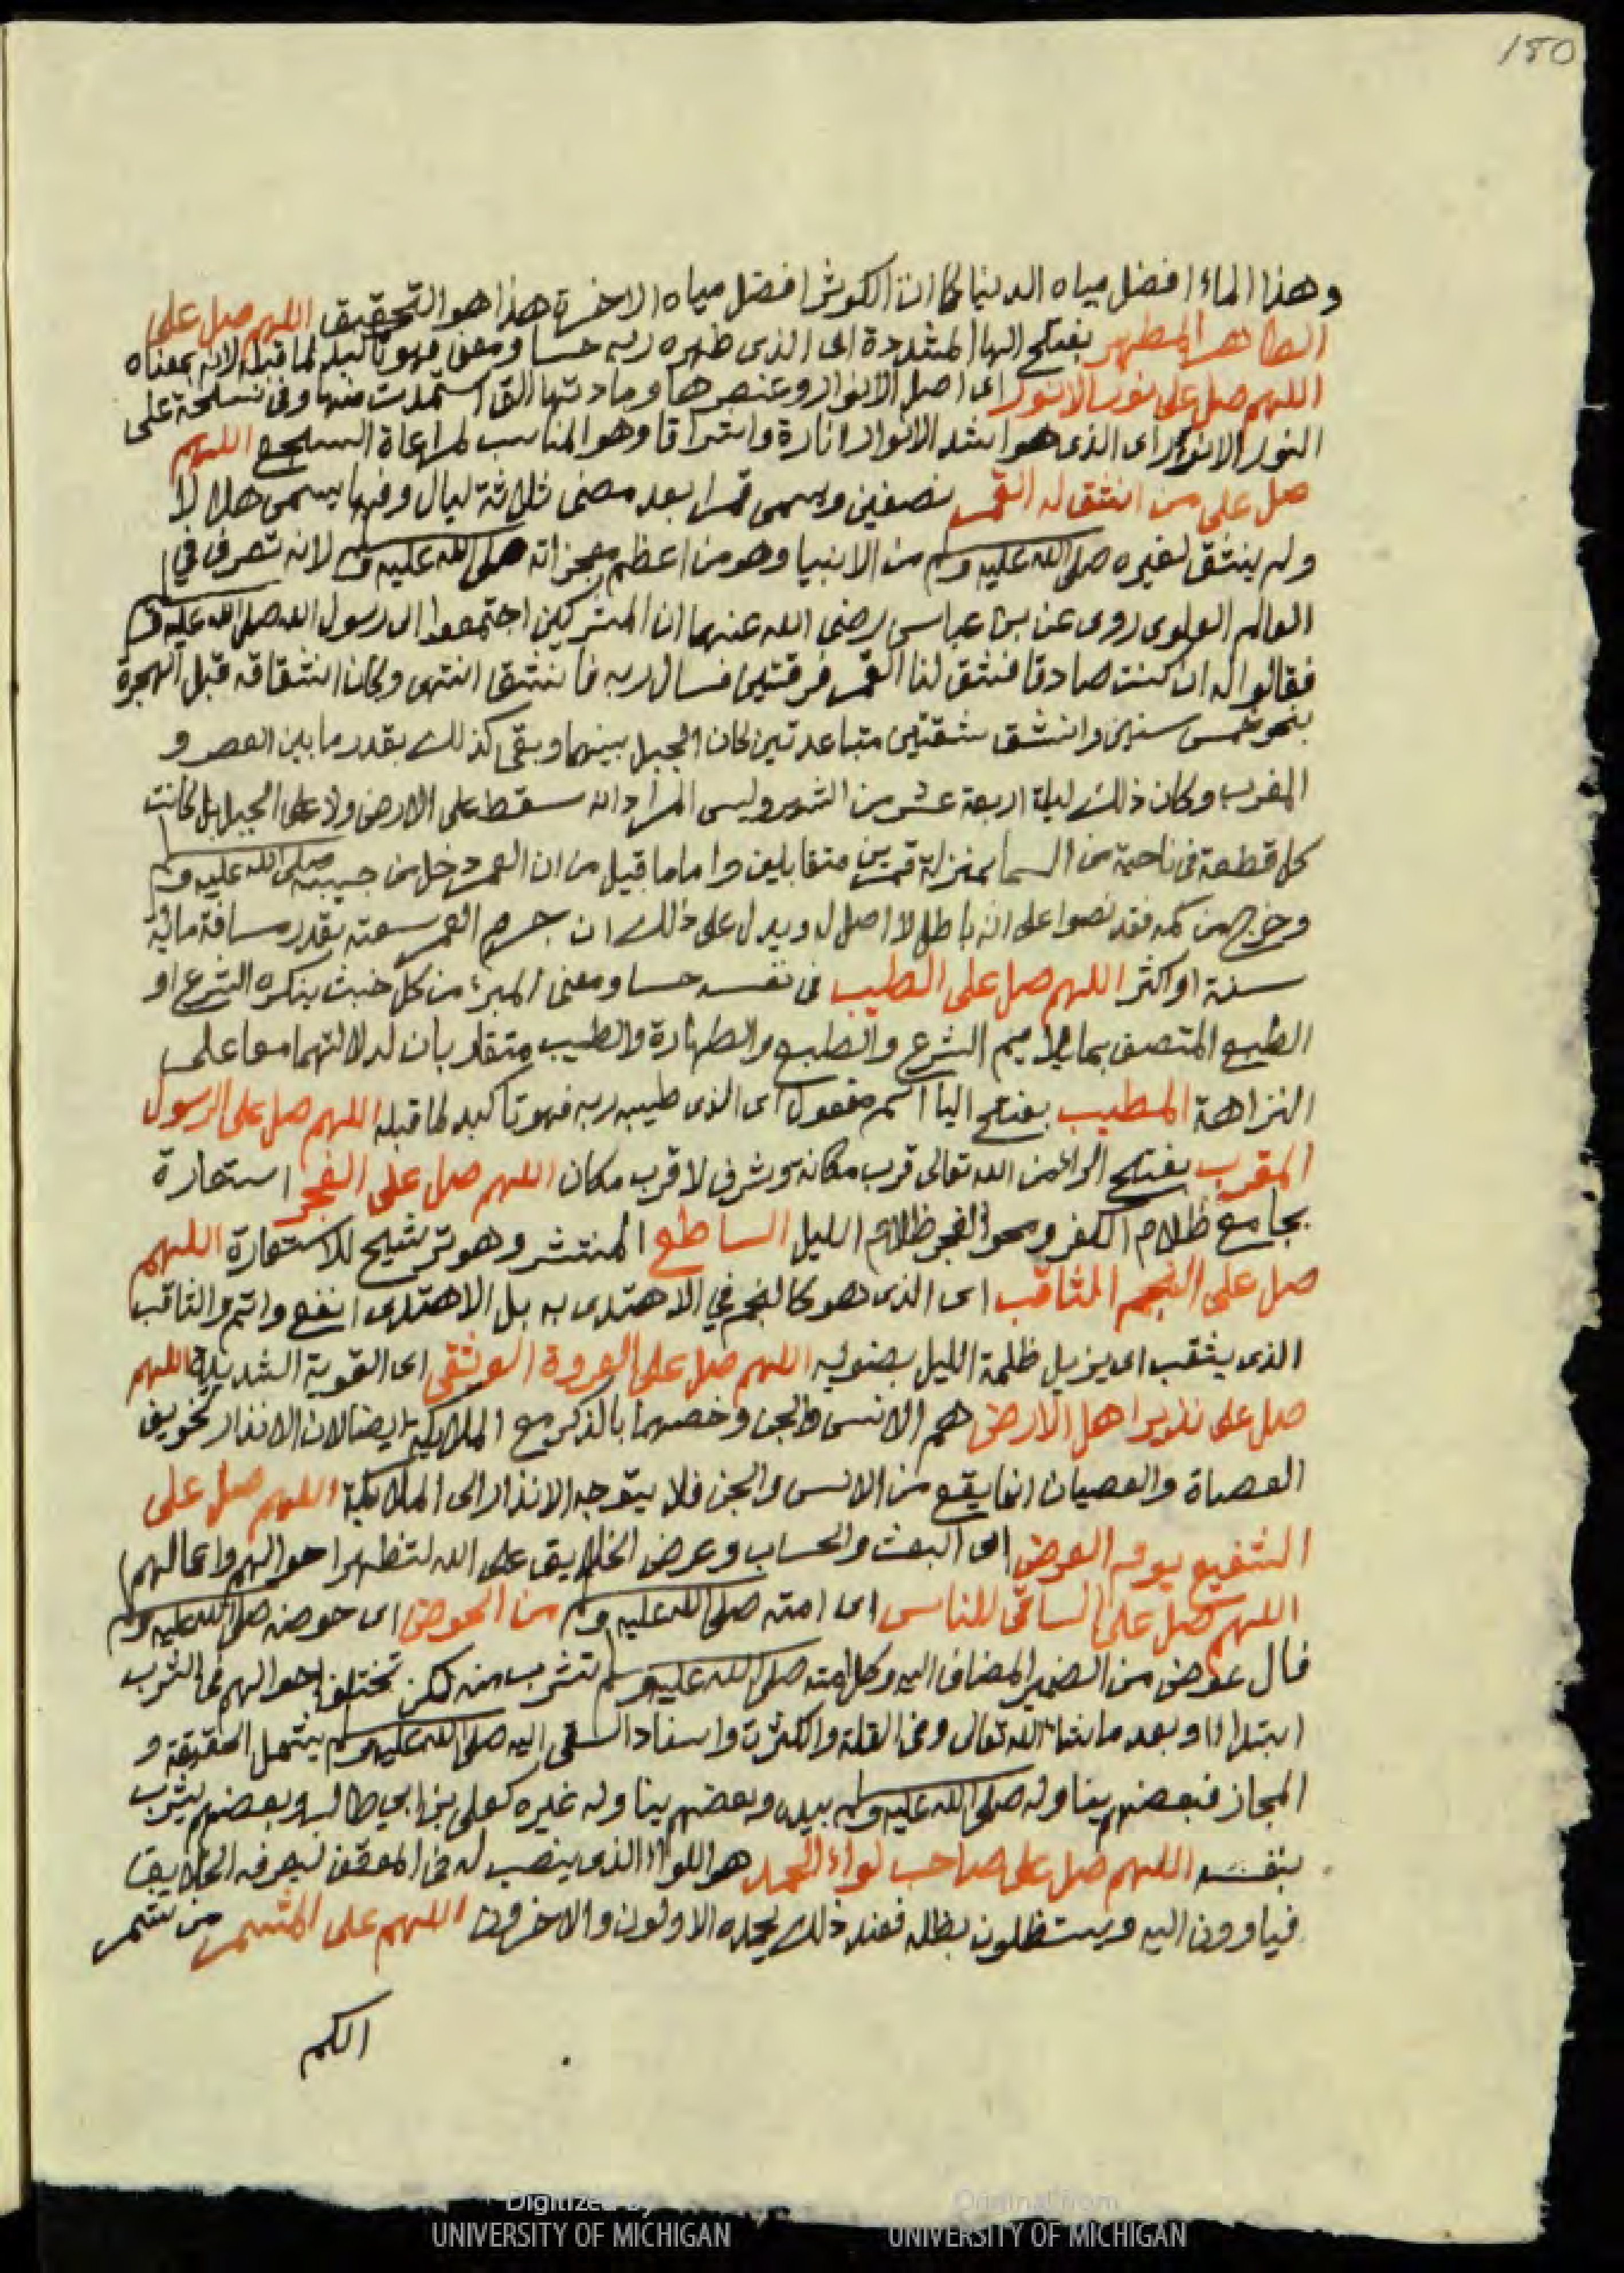 180
وهذا الماء افضل مياه الدنيا كما ان الكوثر افضل مياه الاخرة هذا هو التحقيق اللهم صل على
الطاهر المطهر بفتح الها المشددة اى الذى طهره ربه حسا ومعنى فهو تاكيد لما قبله لانه بمعناه
اللهم صل على نور الانوار اى اصل الانوار وعنصرها ومادتها التى استمدت منها وفى نسخة على
النور الانور اى الذى هو اشد الانوار انارة واشراقا وهو المناسب لمراعاة السجع اللهم
صل على من انشق له القمر نصفين ويسمى قمرا بعد مضى ثلاثة ليال وفيها يسمى هلالا
ولم ينشق لغيره صلى الله عليه وسلم من الانبيا وهو من اعظم معجزاته صلى الله عليه وسلم لانه تصرف في
العالم العلوى روى عن بن عباس رضى الله عنهما ان المشركين اجتمعوا الى رسول الله صلى الله عليه وسلم
فقالوا له ان كنت صادقا فشق لنا القمر فرقتين فسال ربه فانشقا انتهى وكان انشقاقه قبل الهجرة
بنحو خمس سنين وانشق شقتين متباعدتين كان الجبل بينهما وبقى كذلك بقدر ما بين العصر و
المغرب وكان ذلك ليلة اربعة عشر من الشهر وليس المراد انه سقط على الارض ولا على الجبل بل كانت
كل قطعة فى ناحية من السما بمنزلة قمرين متقابلين واما ما قيل من ان القمر دخل من جيبه صلى الله عليه وسلم
وخرج من كمه فقد نصوا على انه باطل لا اصل له ويدل على ذلك ان جرم القمر سعته بقدر مسافة مائة
سنة او اكثر اللهم صل على الطيب فى نفسه حسا ومعنى المبرء من كل خبث ينكره الشرع او
الطبع المتصف بما يلايم الشرع والطبع والطهارة والطيب متقاربان لدلالتهما معا على
النزاهة المطيب بفتح اليا اسم مفعول اى الذى طيبه ربه فهو تاكيد لما قبله اللهم صل على الرسول
المقرب بفتح الراء من الله تعالى قرب مكانة وشرف لا قرب مكان اللهم صل على الفجر استعارة
بجامع ظلام الكفر ومحو الفجر ظلام الليل الساطع المنتشر وهو ترشيح للاستعارة اللهم
صل على النجم الثاقب اى الذى هو كالنجم في الاهتدى به بل الاهتدى انفع واتم والثاقب
الذى يثقب اى يزيل ظلمة الليل بضوئه اللهم صل على العروة الوثقى اى القوية الشديدة اللهم
صل على نذير اهل الارض هم الانس والجن وخصهما بالذكر مع الملايكة ايضا لان الانذار تخويف
العصاة والعصيان انما يقع من الانس والجن فلا يتوجه الانذار الى الملايكة اللهم صل على
الشفيع يوم العرض اى البعث والحساب وعرض الخلايق على الله لتظهر احوالهم واعمالهم
اللهم صل على الساقى للناس اى امته صلى الله عليه وسلم من الحوض اى حوضه صلى الله عليه وسلم
فال عوض من الضمير المضاف اليه وكل امته صلى الله عليه وسلم تشرب منه لكن تختلف احوالهم فى الشرب
ابتداا وبعد ما شاء الله تعالى وفى القلة والكثرة واسناد السقى اليه صلى الله عليه وسلم يشمل الحقيقة و
المجاز فبعضهم يناوله صلى الله عليه وسلم بيده وبعضهم يناوله غيره كعلى بن ابي طالب وبعضهم يشرب
بنفسه اللهم صل على صاحب لواء الحمد هو اللواا الذى ينصب له فى الموقف ليعرفه الخلايق
فياوون اليه ويستظلون بظله فعند ذلك يحمده الاولون والاخرون اللهم على المشمر من شمر
الكم
Digitized by
UNIVERSITY OF MICHIGAN
Original from
UNIVERSITY OF MICHIGAN